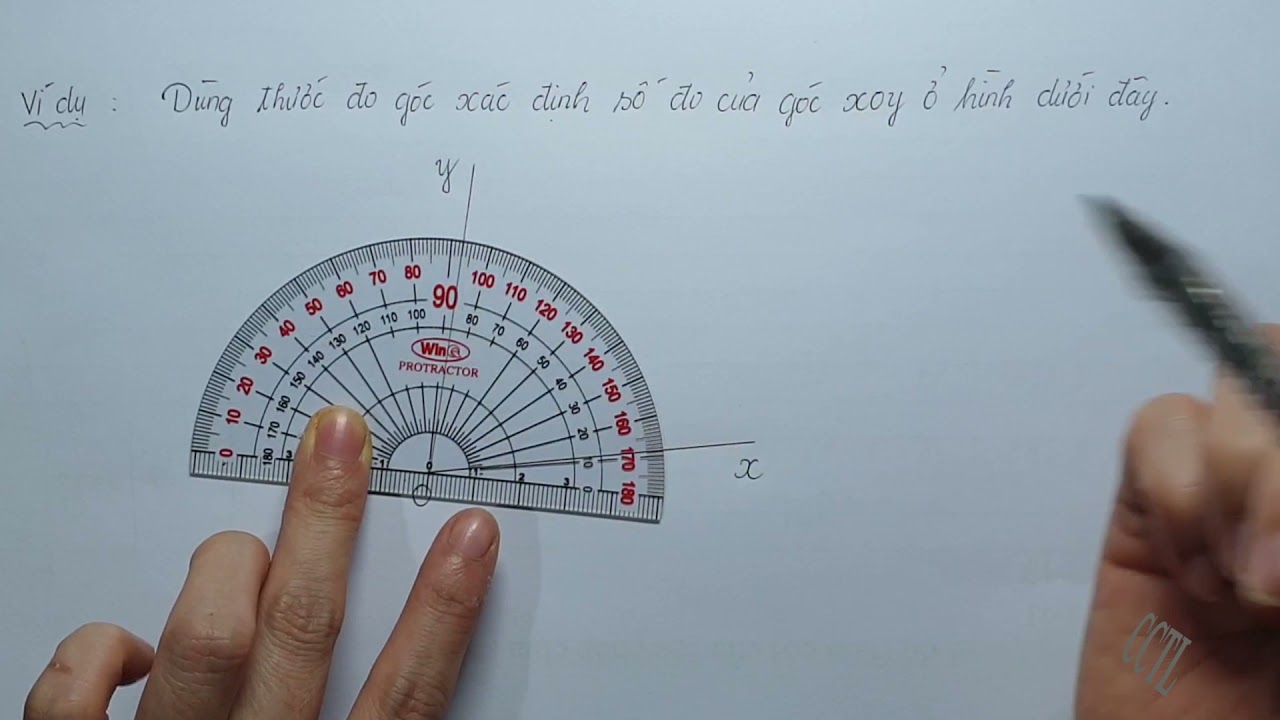 Ví dụ : Dùng thước đo góc xác định số đo của góc xoy ở hình dưới đây.
y
80 90 100
70 110
60 120
50 130
40 140
30 150
20 160
10 170
0 180
100 80
110 70
120 60
130 50
140 40
150 30
160 20
170 10
180 0
Win
PROTRACTOR
x
3 1 0 1 2 3
O
CCTL